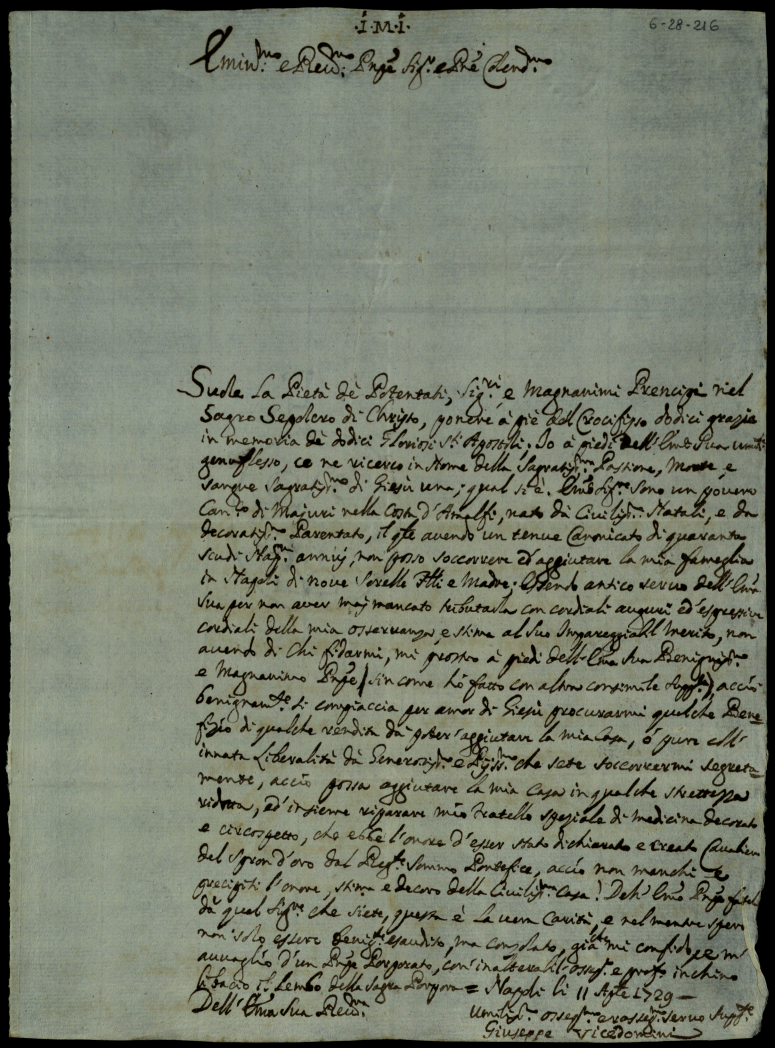 ·I·M·I·
6-28-216
Emin.mo e Rev.mo Pnpe Sig.r e Pne Colend.mo
Suole La Pietà de Potentati, Sig.ri e Magnanimi Prencipi nel
Sagro Sepolcro di Christo, ponere à piè del Crocifisso dodici grazie
in memoria de dodici Gloriosi S.ti Apostoli, Io à piedi dell'Em.a Sua
genuflesso, ce ne ricerco in Nome della Sagratis.ma Passione, Morte, e
Sangue Sagratis.mo di Giesù una; qual si è. Em.o Sig.re Sono un povero
Can.co di Majuri nella Costa d'Amalfi, nato da Civilis.mi Natali, e da
decoratis.mo Parentato, il q.le avendo un tenue Canonicato di quaranta
scudi annuj, non posso soccorrere ed'aggiutare la mia fameglia
in di nove Sorelle F.lli e Madre; Essendo antico servo dell'Em.a
Sua per non aver maj mancato tributarla con cordiali auguri ed'espressive
cordiali della mia osservanza, e stima al Suo Impareggiabil Merito, non
avendo di chi fidarmi, mi prostro à piedi dell'Em.a Sua Benignis.ma
e Magnanimo Pnpe (sin come hò fatto con altra consimile Supp.ca) acciò
benignam.te si compiaccia per amor di Giesù procurarmi qualche Bene=
fizio di qualche rendita da poter'aggiutare la mia Casa, ò pure coll'
innata Liberalità da Generosis.mo e che sete soccorrermi segreta=
mente, acciò possa aggiutare la mia Casa in qualche strettezza
ridotta, ed'insieme riparare mio Fratello speziale di medicina decorato
e circospetto, che ebbe l'onore d'esser stato dichiarato e creato Cavaliere
del Spron d'oro dal Reg.te Sommo Pontefice, acciò non manchi e
precipiti l'onore, stima e decoro della Civilis.ma Casa! Deh' Em.o Pnpe fatela
da quel Sig.re che siete, questa è La vera Carità, e nel mentre spero
non solo essere benig.te esaudito, ma consolato, già che mi confido e m'
avvaglio d'un Pnpe Porporato, con'inalterabil'osseq.o e prof.o inchino
li bacio il Lembo della Sagra Porpora = Napoli li 11 Ag.te 1729 =
Dell'Em.a Sua Rev.ma
Umilis.mo osseq.mo e servo Supp.te
Giuseppe Vicedomini